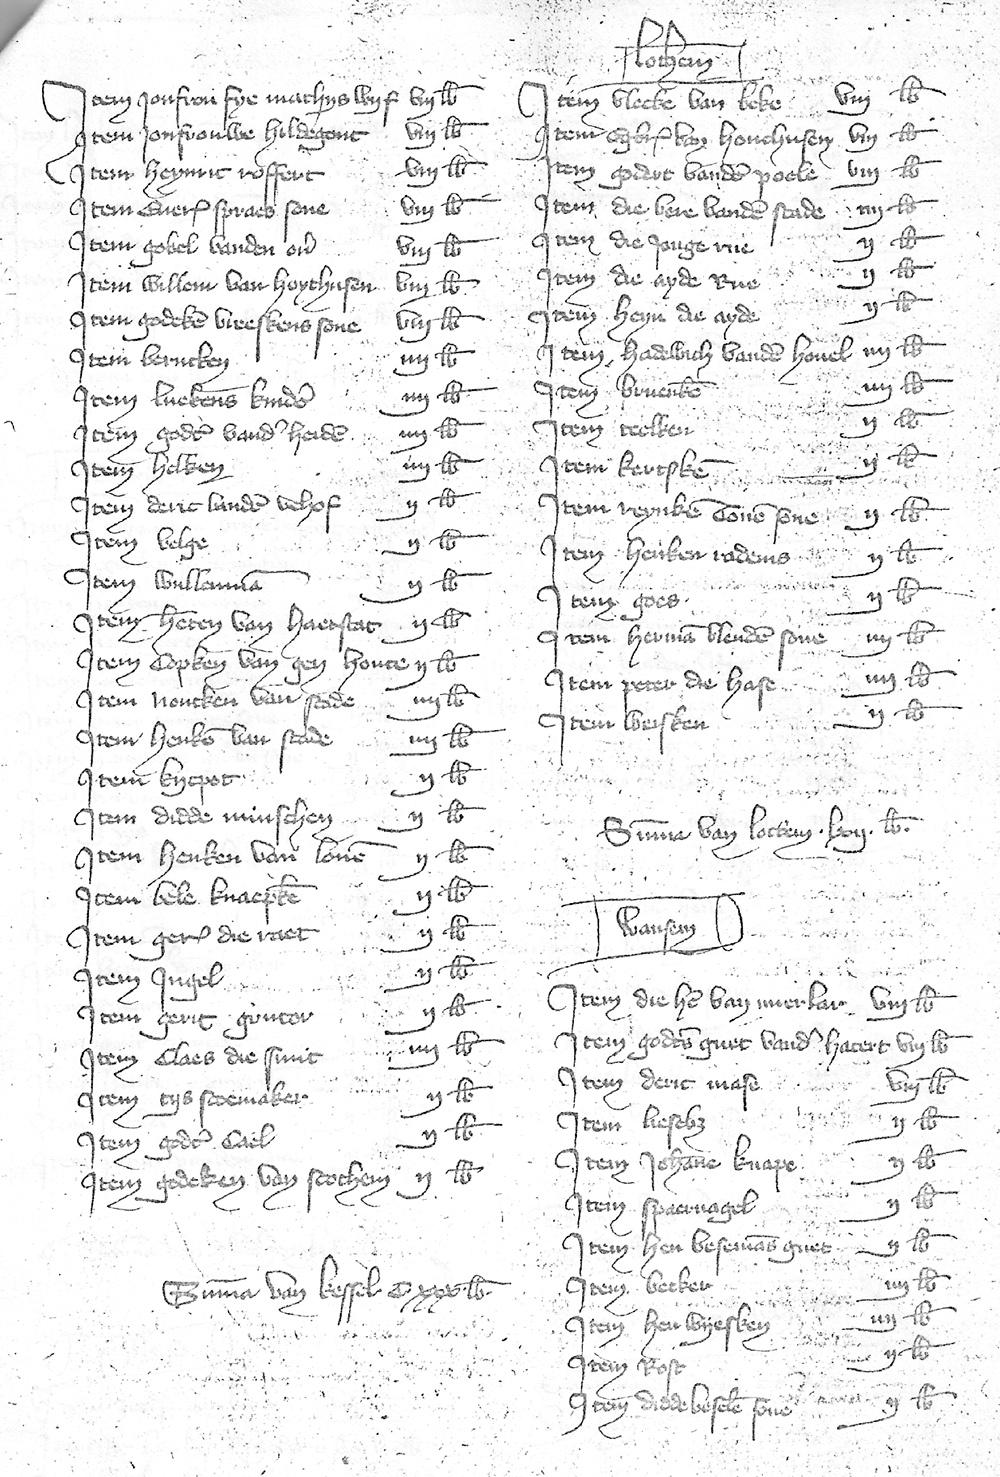 Item Jonfrou fye mathijs wijf viij lb
Item Jonfrouwe hildegont viij lb
Item heynric roffert viij lb
Item Euerᵗ spraes sone viij lb
Item gobel vanden viij lb
Item willem van hoythusen viij lb
Item godekē vreeskens sone viij lb
Item berncken iiij lb
Item luekens kindeʳ iiij lb
Item godᵗ vandʳ heidē iiij lb
Item helken iiij lb
Item deric vandē velhof ij lb
Item belge ij lb
Item wullenmā ij lb
Item van haerstat ij lb
Item Copken van gen houte ij lb
Item noucken van stade iiij lb
Item henkē van stade iiij lb
Item kijcpot ij lb
Item didde minschen ij lb
Item henken van louē ij lb
Item bele knaepkē ij lb
Item gerᵗ die raet ij lb
Item Jngel ij lb
Item gerit gruter ij lb
Item Claes die smit iiij lb
Item tijs scoemaker ij lb
Item godᵗ Cael ij lb
Item godeken van stochem ij lb
Sum̄a van kessel Cxxx lb
lothem
Item vlecke van beke viij lb
Item van houthusen viij lb
Item godert vandē poele viij lb
Item die bere vandē stade iiij lb
Item die Jonge rue ij lb
Item die ayde Rue ij lb
Item heyn die ayde ij lb
Item hadewich vandē houel iiij lb
Item bruenkē iiij lb
Item teelken ij lb
Item kertskē ij lb
Item reynkē Conē sone ij lb
Item henken radems ij lb
Item goes ij lb
Item hermā blendē sone iiij lb
Item peter die hase iiij lb
Item weisken ij lb
Sum̄a van lottem . lxij . lb .
wansem
Item die hē van merlar viij lb
Item godᵗs guet vandʳ hatert viij lb
Item deric mase viij lb
Item liesebz ij lb
Item Johāne knape ij lb
Item spaernagel ij lb
Item hen besemās guet ij lb
Item becker iiij lb
Item hen wijesken iiij lb
Item Rost ij lb
Item didde beselē sone ij lb